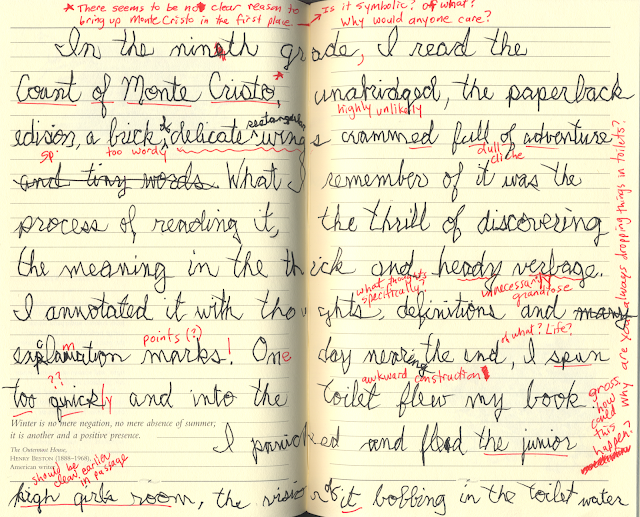 * There seems to be not clear reason to
bring up Monte Cristo in the first place → Is it symbolic? of what?
Why would anyone care?
In the nineth grade, I read the
Count of Monte Cristo,* unabridged, the paperback
highly unlikely
edison, a brick of delicate rectangular wings crammed full of adventure
sp. too wordy dull cliche
and tiny words. What I remember of it was the
process of reading it, the thrill of discovering
the meaning in the thick and heady verbage.
what thoughts specifically? unnecessarily grandiose
I annotated it with thoughts, definitions and many
points (?) of what? Life?
explamation marks! One day nearing the end, I spun
?? awkward construction
too quickly and into the toilet flew my book.
Winter is no mere negation, no mere absence of summer;
it is another and a positive presence.
The Outermost House,
HENRY BESTON (1888–1968),
American writer
I panicked and fled the junior
should be clear earlier in passage
high girls room, the vision of it bobbing in the toilet water
gross how could this happen?
why are you always dropping things in toilets?